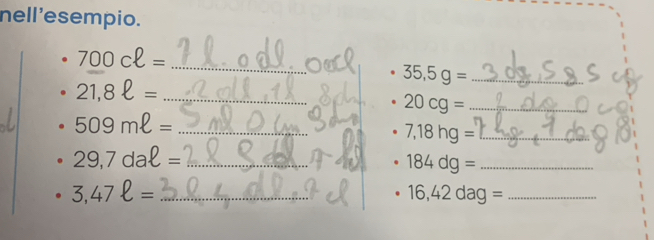 nell'esempio.
• 700 cℓ = 7 l. 0 dl. 0 cl
• 21,8 ℓ = 2 dal 1 l 8
• 509 mℓ = 5
• 29,7 daℓ = 2
• 3,47 ℓ = 3 l 4 dl. 7 cl
• 35,5 g = 3 dg. 5 g 5 cg
• 20 cg = 2 dg 0 cg
• 7,18 hg = 7 hg, 1 dag 8
• 184 dg =
• 16,42 dag =